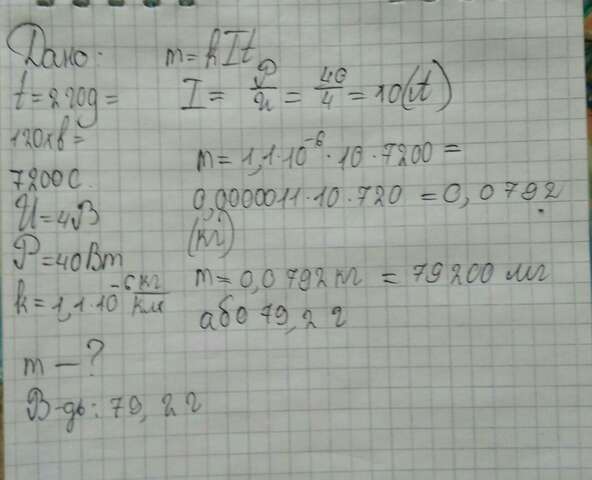 Дано:
t = 2 год =
120 хв =
7200 с.
U = 4 В
P = 40 Вт
k = 1,1·10⁻⁶ кг/Кл
m — ?
m = kIt
I = P/U = 40/4 = 10 (A)
m = 1,1·10⁻⁶·10·7200 =
0,0000011·10·720 = 0,0792
(кг)
m = 0,0792 кг = 79200 мг
або 79,2 г
В-дь: 79,2 г